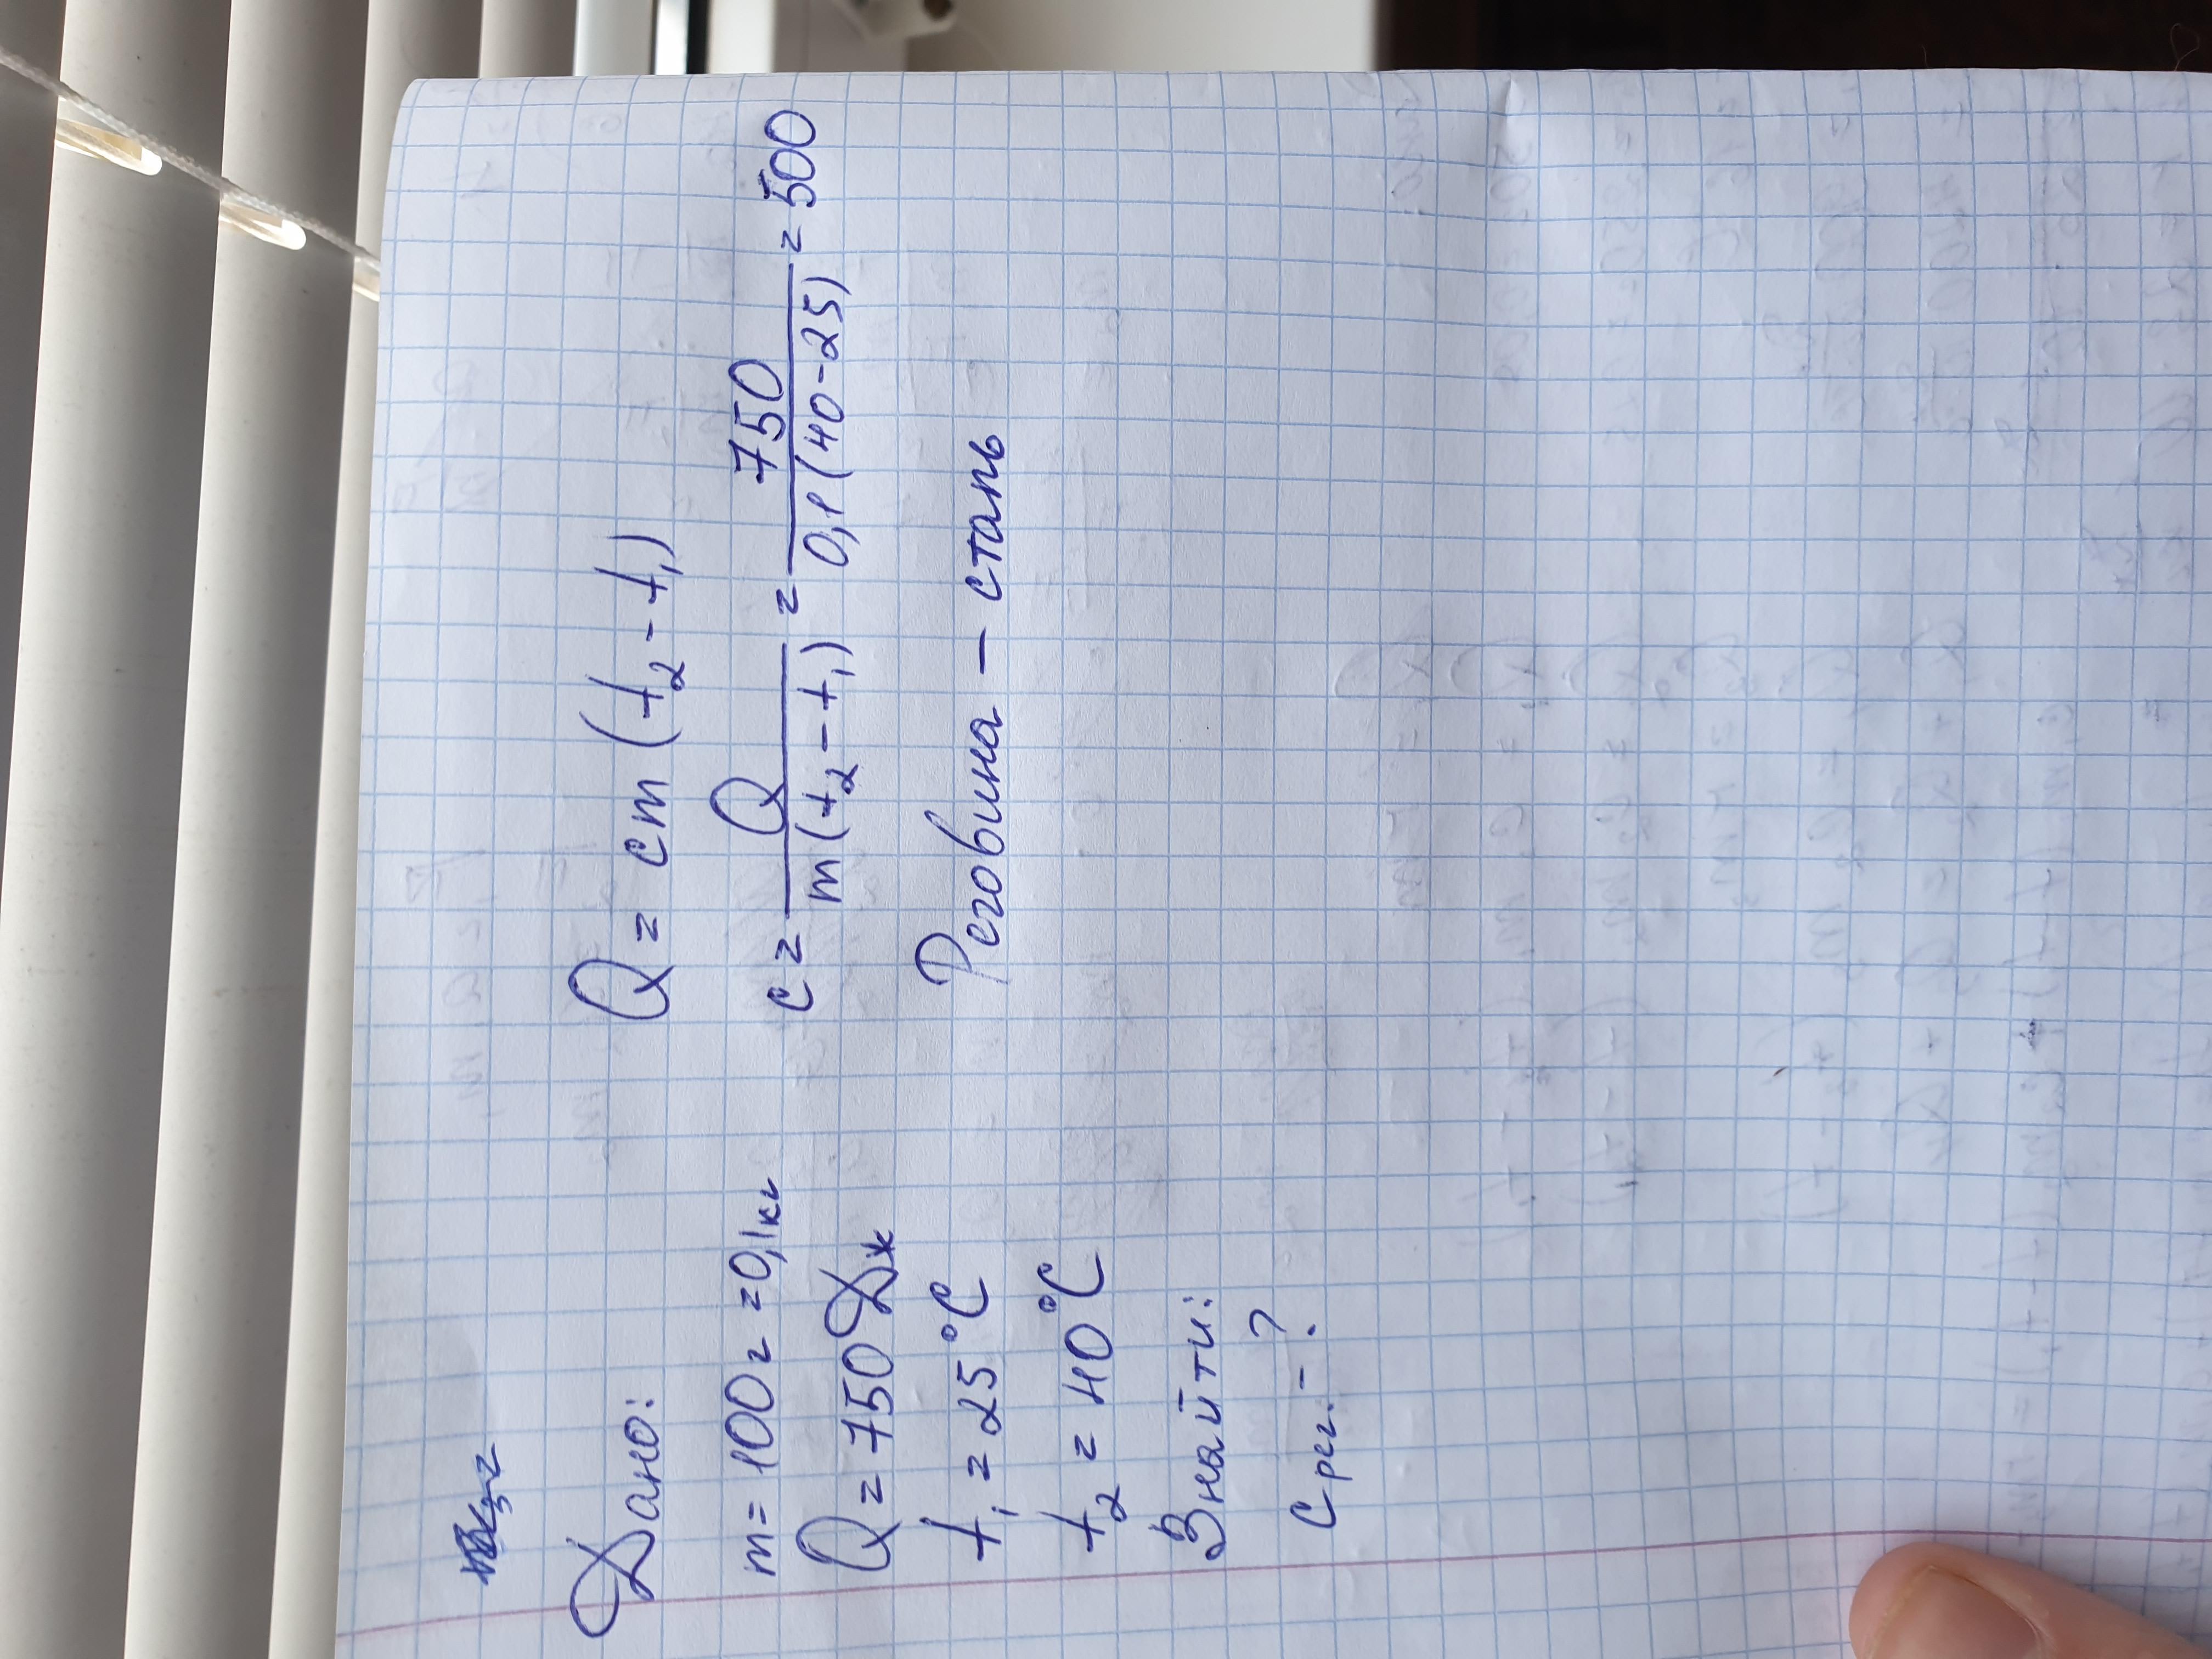 Дано:
m = 100 г = 0,1 кг
Q = 750 Дж
t₁ = 25 °C
t₂ = 40 °C
Знайти:
C рег. - ?
Q = cm (t₂ - t₁)
c = Q / m (t₂ - t₁) = 750 / 0,1 (40 - 25) = 500
Реговина – сталь